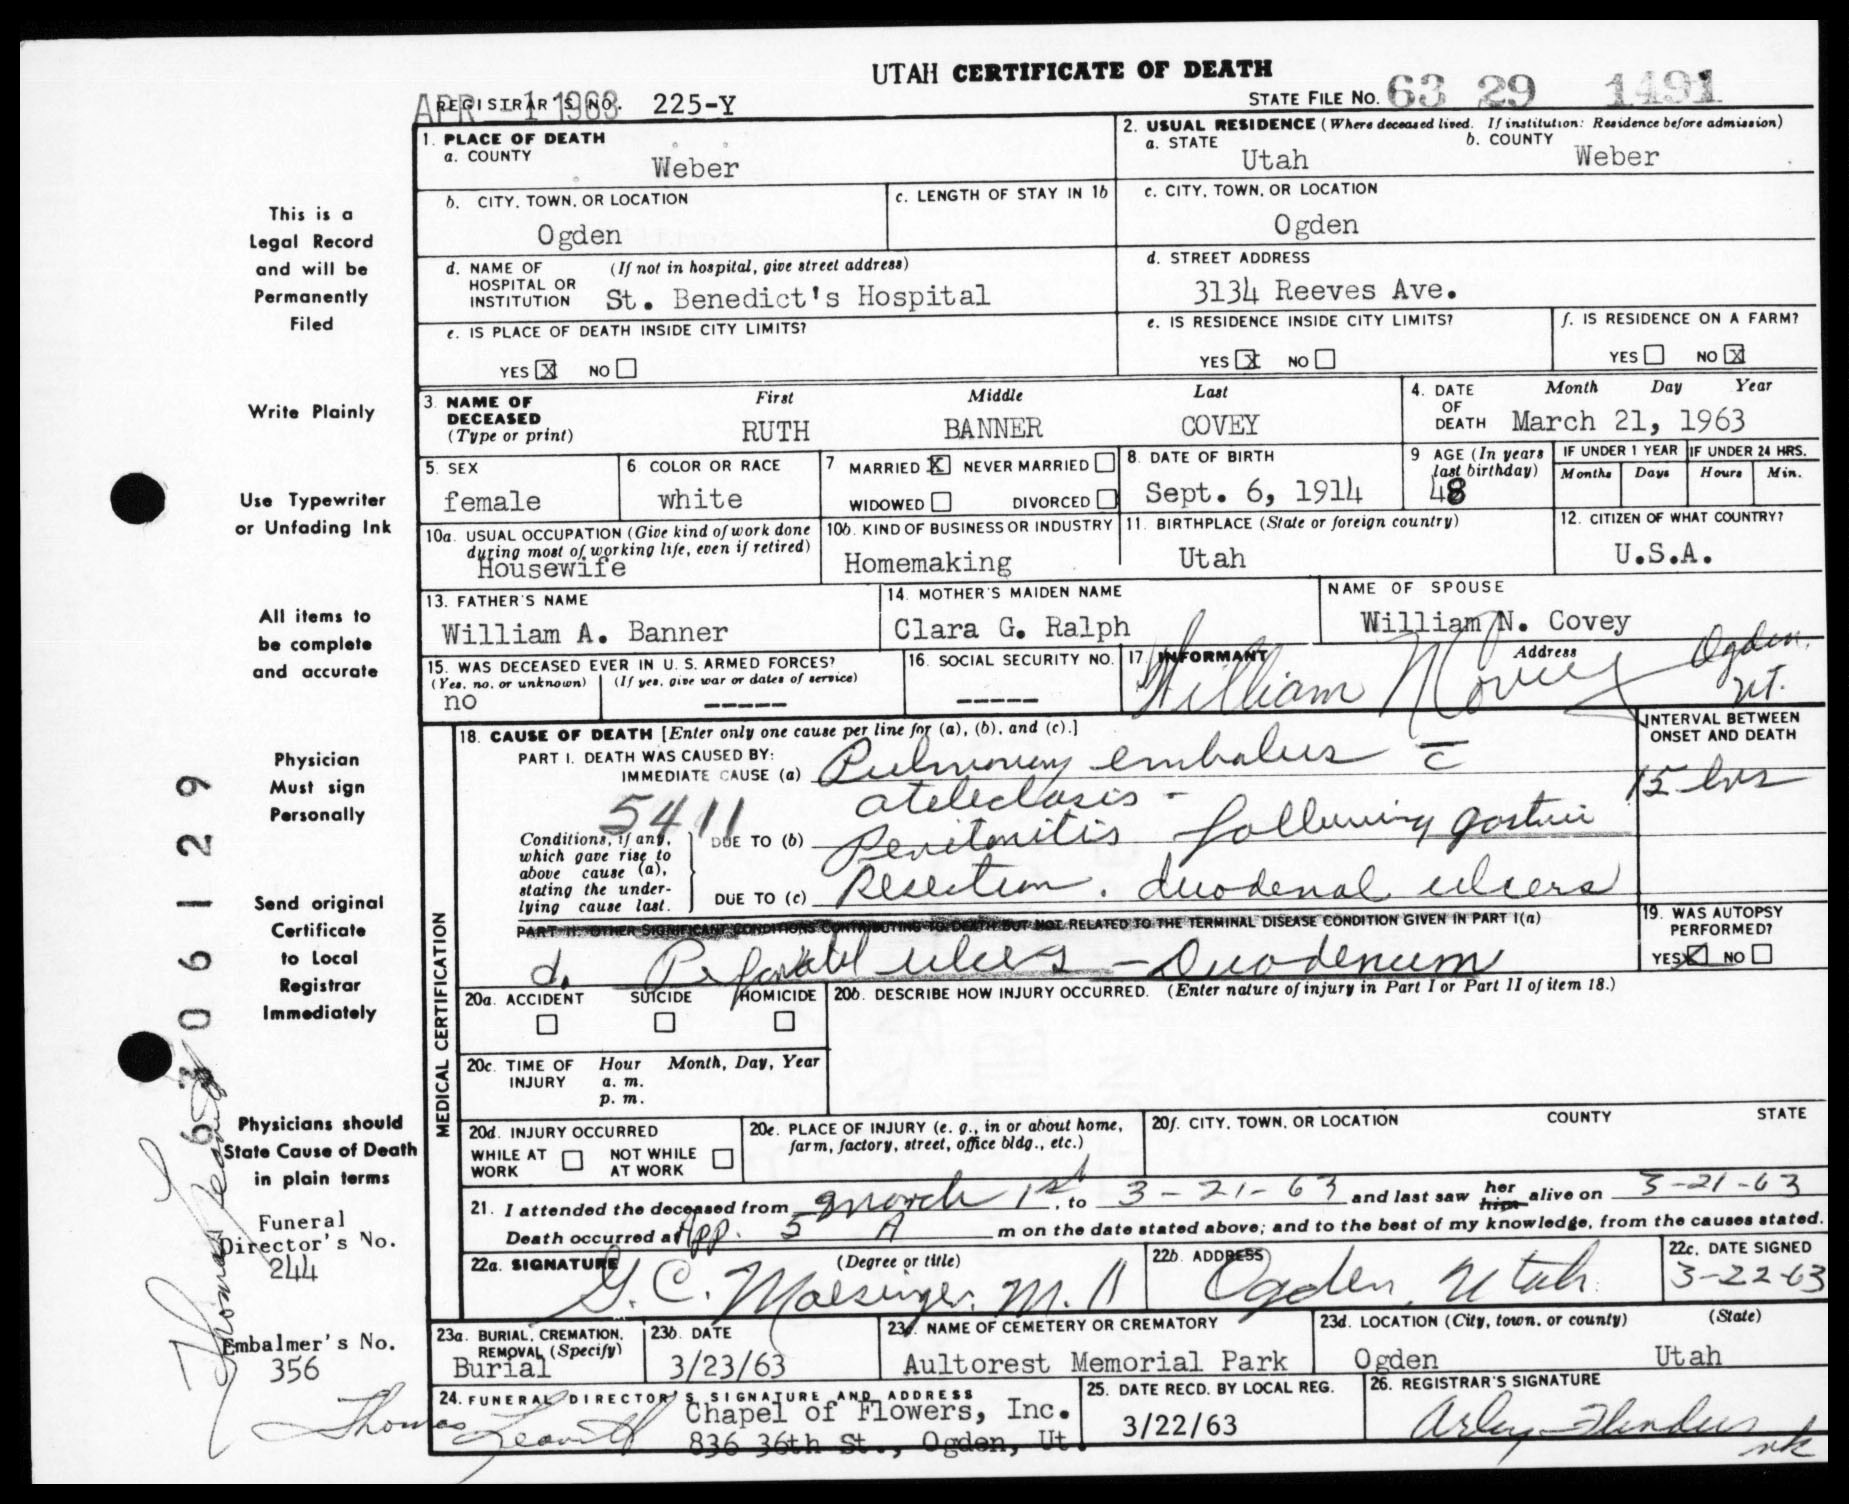 UTAH CERTIFICATE OF DEATH
APR -1 1963 REGISTRAR'S NO. 225-Y
STATE FILE NO. 63 29 1491
This is a
Legal Record
and will be
Permanently
Filed
Write Plainly
Use Typewriter
or Unfading Ink
All items to
be complete
and accurate
Physician
Must sign
Personally
Send original
Certificate
to Local
Registrar
Immediately
Physicians should
State Cause of Death
in plain terms
Funeral
Director's No.
244
Embalmer's No.
356
63 06129
Thomas Leavitt
1. PLACE OF DEATH
a. COUNTY
Weber
2. USUAL RESIDENCE (Where deceased lived. If institution: Residence before admission)
a. STATE Utah b. COUNTY Weber
b. CITY, TOWN, OR LOCATION
Ogden
c. LENGTH OF STAY IN 1b
c. CITY, TOWN, OR LOCATION
Ogden
d. NAME OF HOSPITAL OR INSTITUTION (If not in hospital, give street address)
St. Benedict's Hospital
d. STREET ADDRESS
3134 Reeves Ave.
e. IS PLACE OF DEATH INSIDE CITY LIMITS?
YES X NO
e. IS RESIDENCE INSIDE CITY LIMITS?
YES X NO
f. IS RESIDENCE ON A FARM?
YES NO X
3. NAME OF DECEASED (Type or print)
First Middle Last
RUTH BANNER COVEY
4. DATE OF DEATH Month Day Year
March 21, 1963
5. SEX
female
6. COLOR OR RACE
white
7 MARRIED X NEVER MARRIED
WIDOWED DIVORCED
8. DATE OF BIRTH
Sept. 6, 1914
9 AGE (In years last birthday)
48
IF UNDER 1 YEAR
Months Days
IF UNDER 24 HRS.
Hours Min.
10a. USUAL OCCUPATION (Give kind of work done during most of working life, even if retired)
Housewife
10b. KIND OF BUSINESS OR INDUSTRY
Homemaking
11. BIRTHPLACE (State or foreign country)
Utah
12. CITIZEN OF WHAT COUNTRY?
U.S.A.
13. FATHER'S NAME
William A. Banner
14. MOTHER'S MAIDEN NAME
Clara G. Ralph
NAME OF SPOUSE
William N. Covey
15. WAS DECEASED EVER IN U. S. ARMED FORCES?
(Yes, no, or unknown) (If yes, give war or dates of service)
no -----
16. SOCIAL SECURITY NO.
-----
17. INFORMANT Address
William N Covey Ogden, Ut.
MEDICAL CERTIFICATION
18. CAUSE OF DEATH [Enter only one cause per line for (a), (b), and (c).]
INTERVAL BETWEEN ONSET AND DEATH
PART I. DEATH WAS CAUSED BY:
IMMEDIATE CAUSE (a) Pulmonary embolus c̄
atelectasis -
15 hrs
5411
Conditions, if any, which gave rise to above cause (a), stating the underlying cause last.
DUE TO (b) Peritonitis following gastric
DUE TO (c) Resection. duodenal ulcers
PART II. OTHER SIGNIFICANT CONDITIONS CONTRIBUTING TO DEATH BUT NOT RELATED TO THE TERMINAL DISEASE CONDITION GIVEN IN PART I(a)
d. ulcers - Duodenum
19. WAS AUTOPSY PERFORMED?
YES X NO
20a. ACCIDENT SUICIDE HOMICIDE
20b. DESCRIBE HOW INJURY OCCURRED. (Enter nature of injury in Part I or Part II of item 18.)
20c. TIME OF INJURY Hour Month, Day, Year
a. m.
p. m.
20d. INJURY OCCURRED
WHILE AT WORK NOT WHILE AT WORK
20e. PLACE OF INJURY (e. g., in or about home, farm, factory, street, office bldg., etc.)
20f. CITY, TOWN, OR LOCATION COUNTY STATE
21. I attended the deceased from March 1st, to 3-21-63 and last saw her him alive on 3-21-63
Death occurred at App. 5 A m on the date stated above; and to the best of my knowledge, from the causes stated.
22a. SIGNATURE (Degree or title)
G. C. Moesinger, M.D
22b. ADDRESS
Ogden, Utah.
22c. DATE SIGNED
3-22-63
23a. BURIAL, CREMATION, REMOVAL (Specify)
Burial
23b. DATE
3/23/63
23c. NAME OF CEMETERY OR CREMATORY
Aultorest Memorial Park
23d. LOCATION (City, town, or county) (State)
Ogden Utah
24. FUNERAL DIRECTOR'S SIGNATURE AND ADDRESS
Thomas Leavitt
Chapel of Flowers, Inc.
836 36th St., Ogden, Ut.
25. DATE RECD. BY LOCAL REG.
3/22/63
26. REGISTRAR'S SIGNATURE
Arley Flinders
nk